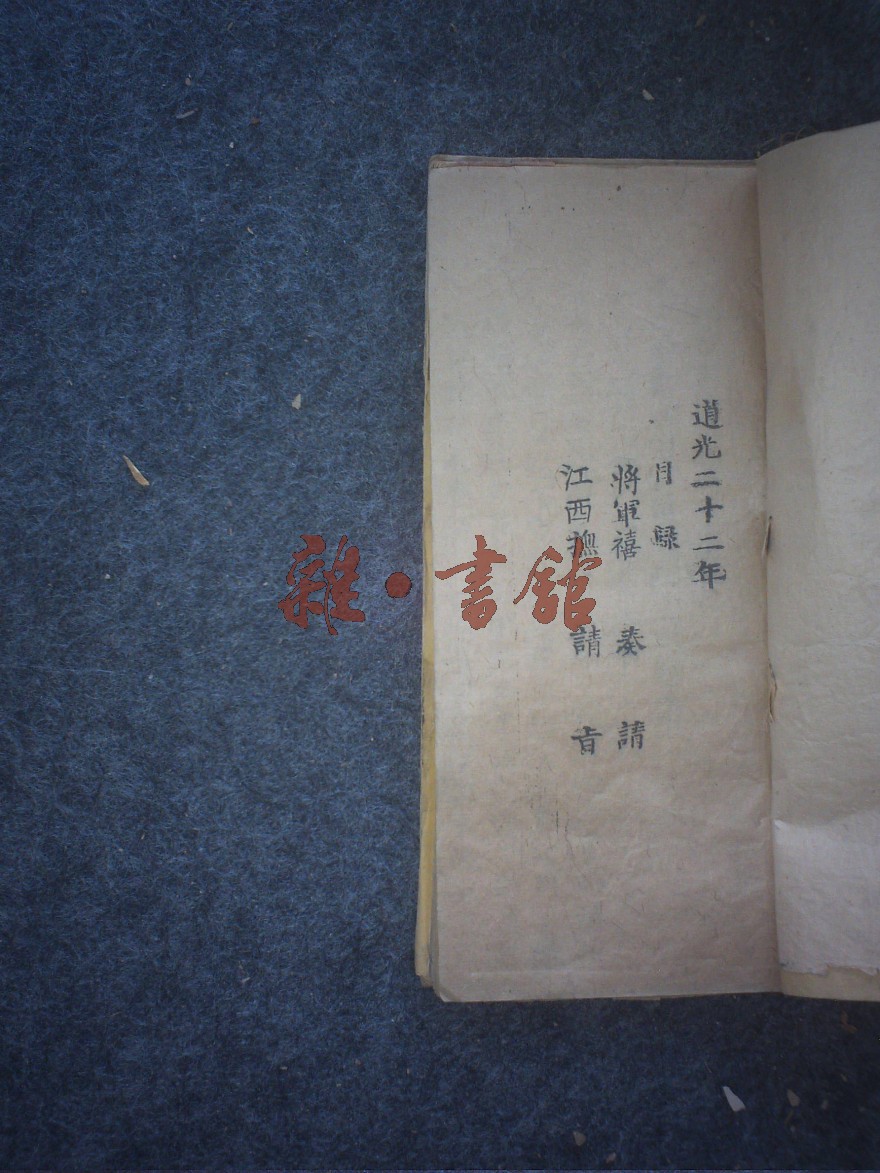 道光二十二年
目錄
將軍禧 奏請
江西撫 請旨
雜·書館